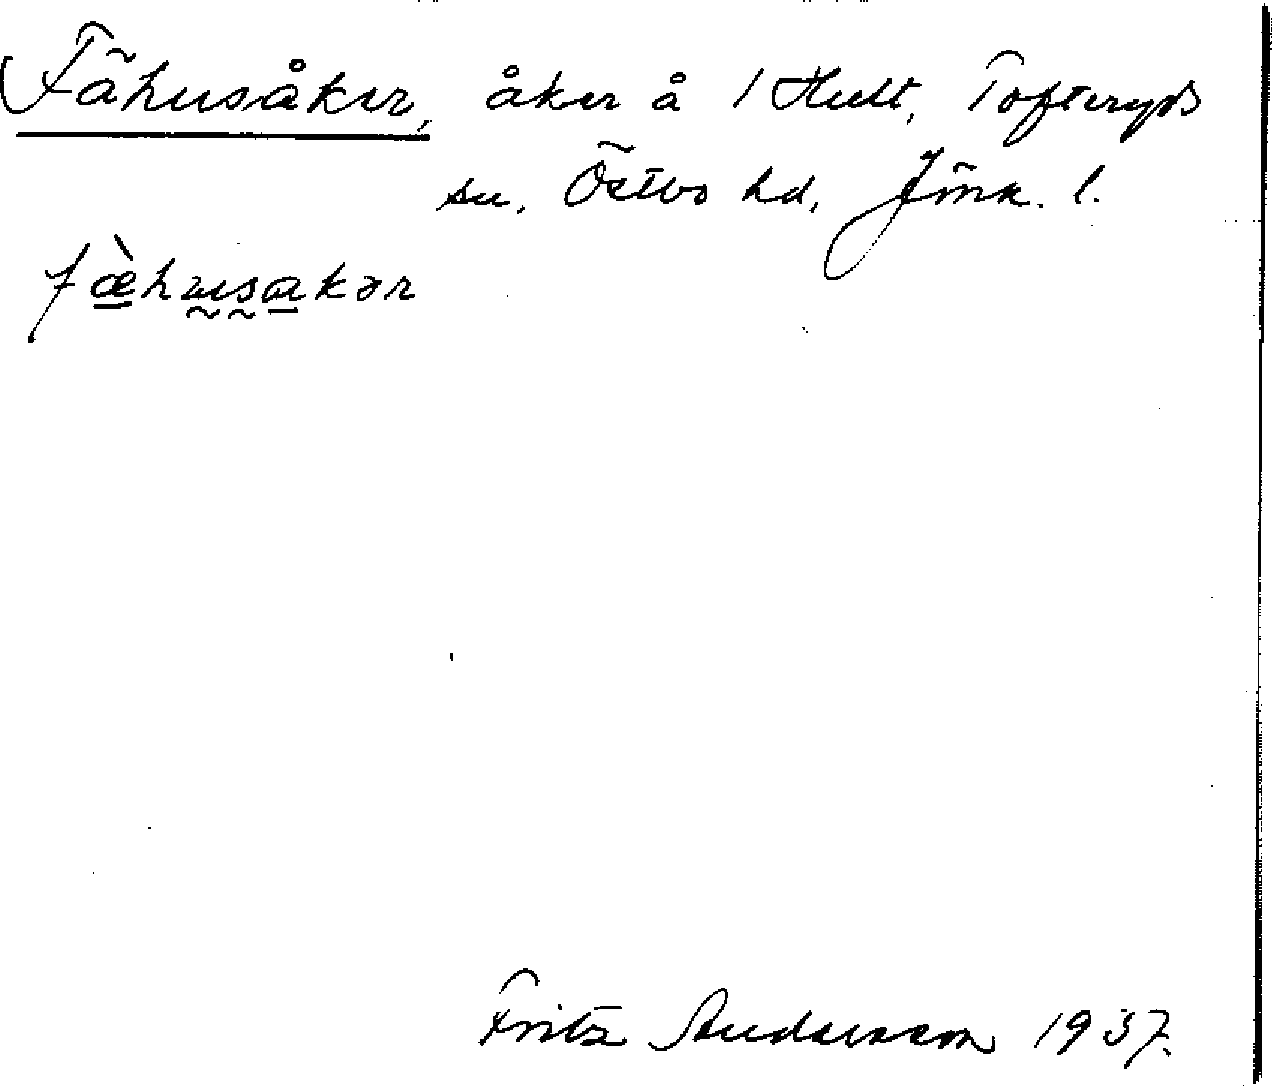 Fähusåker, åker å 1 Hult, Tofteryds
sn, Östbo hd, Jönk. l.
fæ̀husakər
Fritz Andersson 1937.